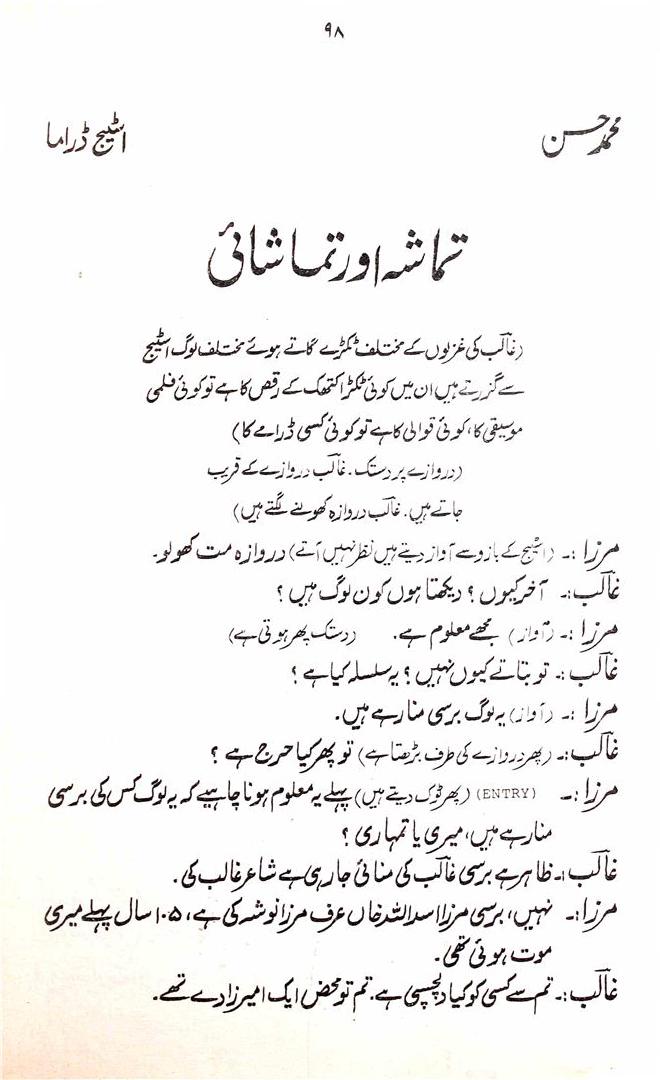 ۹۸
محمد حسن
اسٹیج ڈراما
تماشہ اور تماشائی
(غالب کی غزلوں کے مختلف ٹکڑے گاتے ہوئے مختلف لوگ اسٹیج
سے گزرتے ہیں ان میں کوئی ٹکڑا کتھک کے رقص کا ہے تو کوئی فلمی
موسیقی کا، کوئی قوالی کا ہے تو کوئی کسی ڈرامے کا)
(دروازے پر دستک۔ غالب دروازے کے قریب
جاتے ہیں۔ غالب دروازہ کھولنے لگتے ہیں)
مرزا :۔ (اسٹیج کے بازو سے آواز دیتے ہیں نظر نہیں آتے) دروازہ مت کھولو۔
غالب:۔ آخر کیوں ؟ دیکھتا ہوں کون لوگ ہیں ؟
مرزا :۔ (آواز) مجھے معلوم ہے۔ (دستک پھر ہوتی ہے)
غالب :۔ تو بتاتے کیوں نہیں ؟ یہ سلسلہ کیا ہے ؟
مرزا :۔ (آواز) یہ لوگ برسی منا رہے ہیں۔
غالب:۔ (پھر دروازے کی طرف بڑھتا ہے) تو پھر کیا حرج ہے ؟
مرزا :۔ (ENTRY) (پھر ٹوک دیتے ہیں) پہلے یہ معلوم ہونا چاہیے کہ یہ لوگ کس کی برسی
منا رہے ہیں، میری یا تمہاری ؟
غالب :۔ ظاہر ہے برسی غالب کی منائی جا رہی ہے شاعر غالب کی۔
مرزا:۔ نہیں، برسی مرزا اسد اللہ خاں عرف مرزا نوشہ کی ہے، ۱۰۵ سال پہلے میری
موت ہوئی تھی۔
غالب :۔ تم سے کسی کو کیا دلچسپی ہے۔ تم تو محض ایک امیرزادے تھے۔